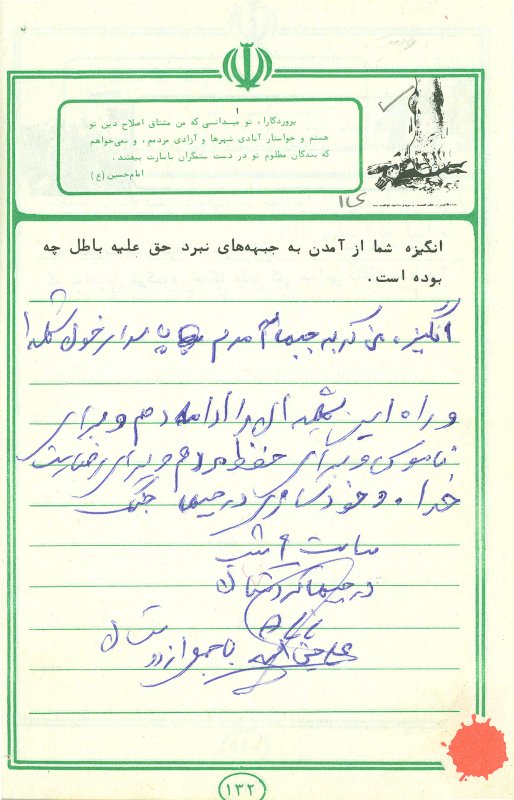 پروردگارا، تو میدانی که من مشتاق اصلاح دین تو
هستم و خواستار آبادی شهرها و آزادی مردمم، و نمی‌خواهم
که بندگان مظلوم تو در دست ستمگران باسارت بیفتند.
امام حسین (ع)
انگیزه شما از آمدن به جبهه‌های نبرد حق علیه باطل چه
بوده است.
انگیزه من که به جبهه آمدم پاسدار خون شهدا
و راه این شهیدان را ادامه دهم و برای
ناموس و برای حفظ مردم و برای رضایت
خدا و خودسازی در جبهه جنگ
ساعت ۶ شب
در جبهه کردستان
پایان
علی
۱۳۲